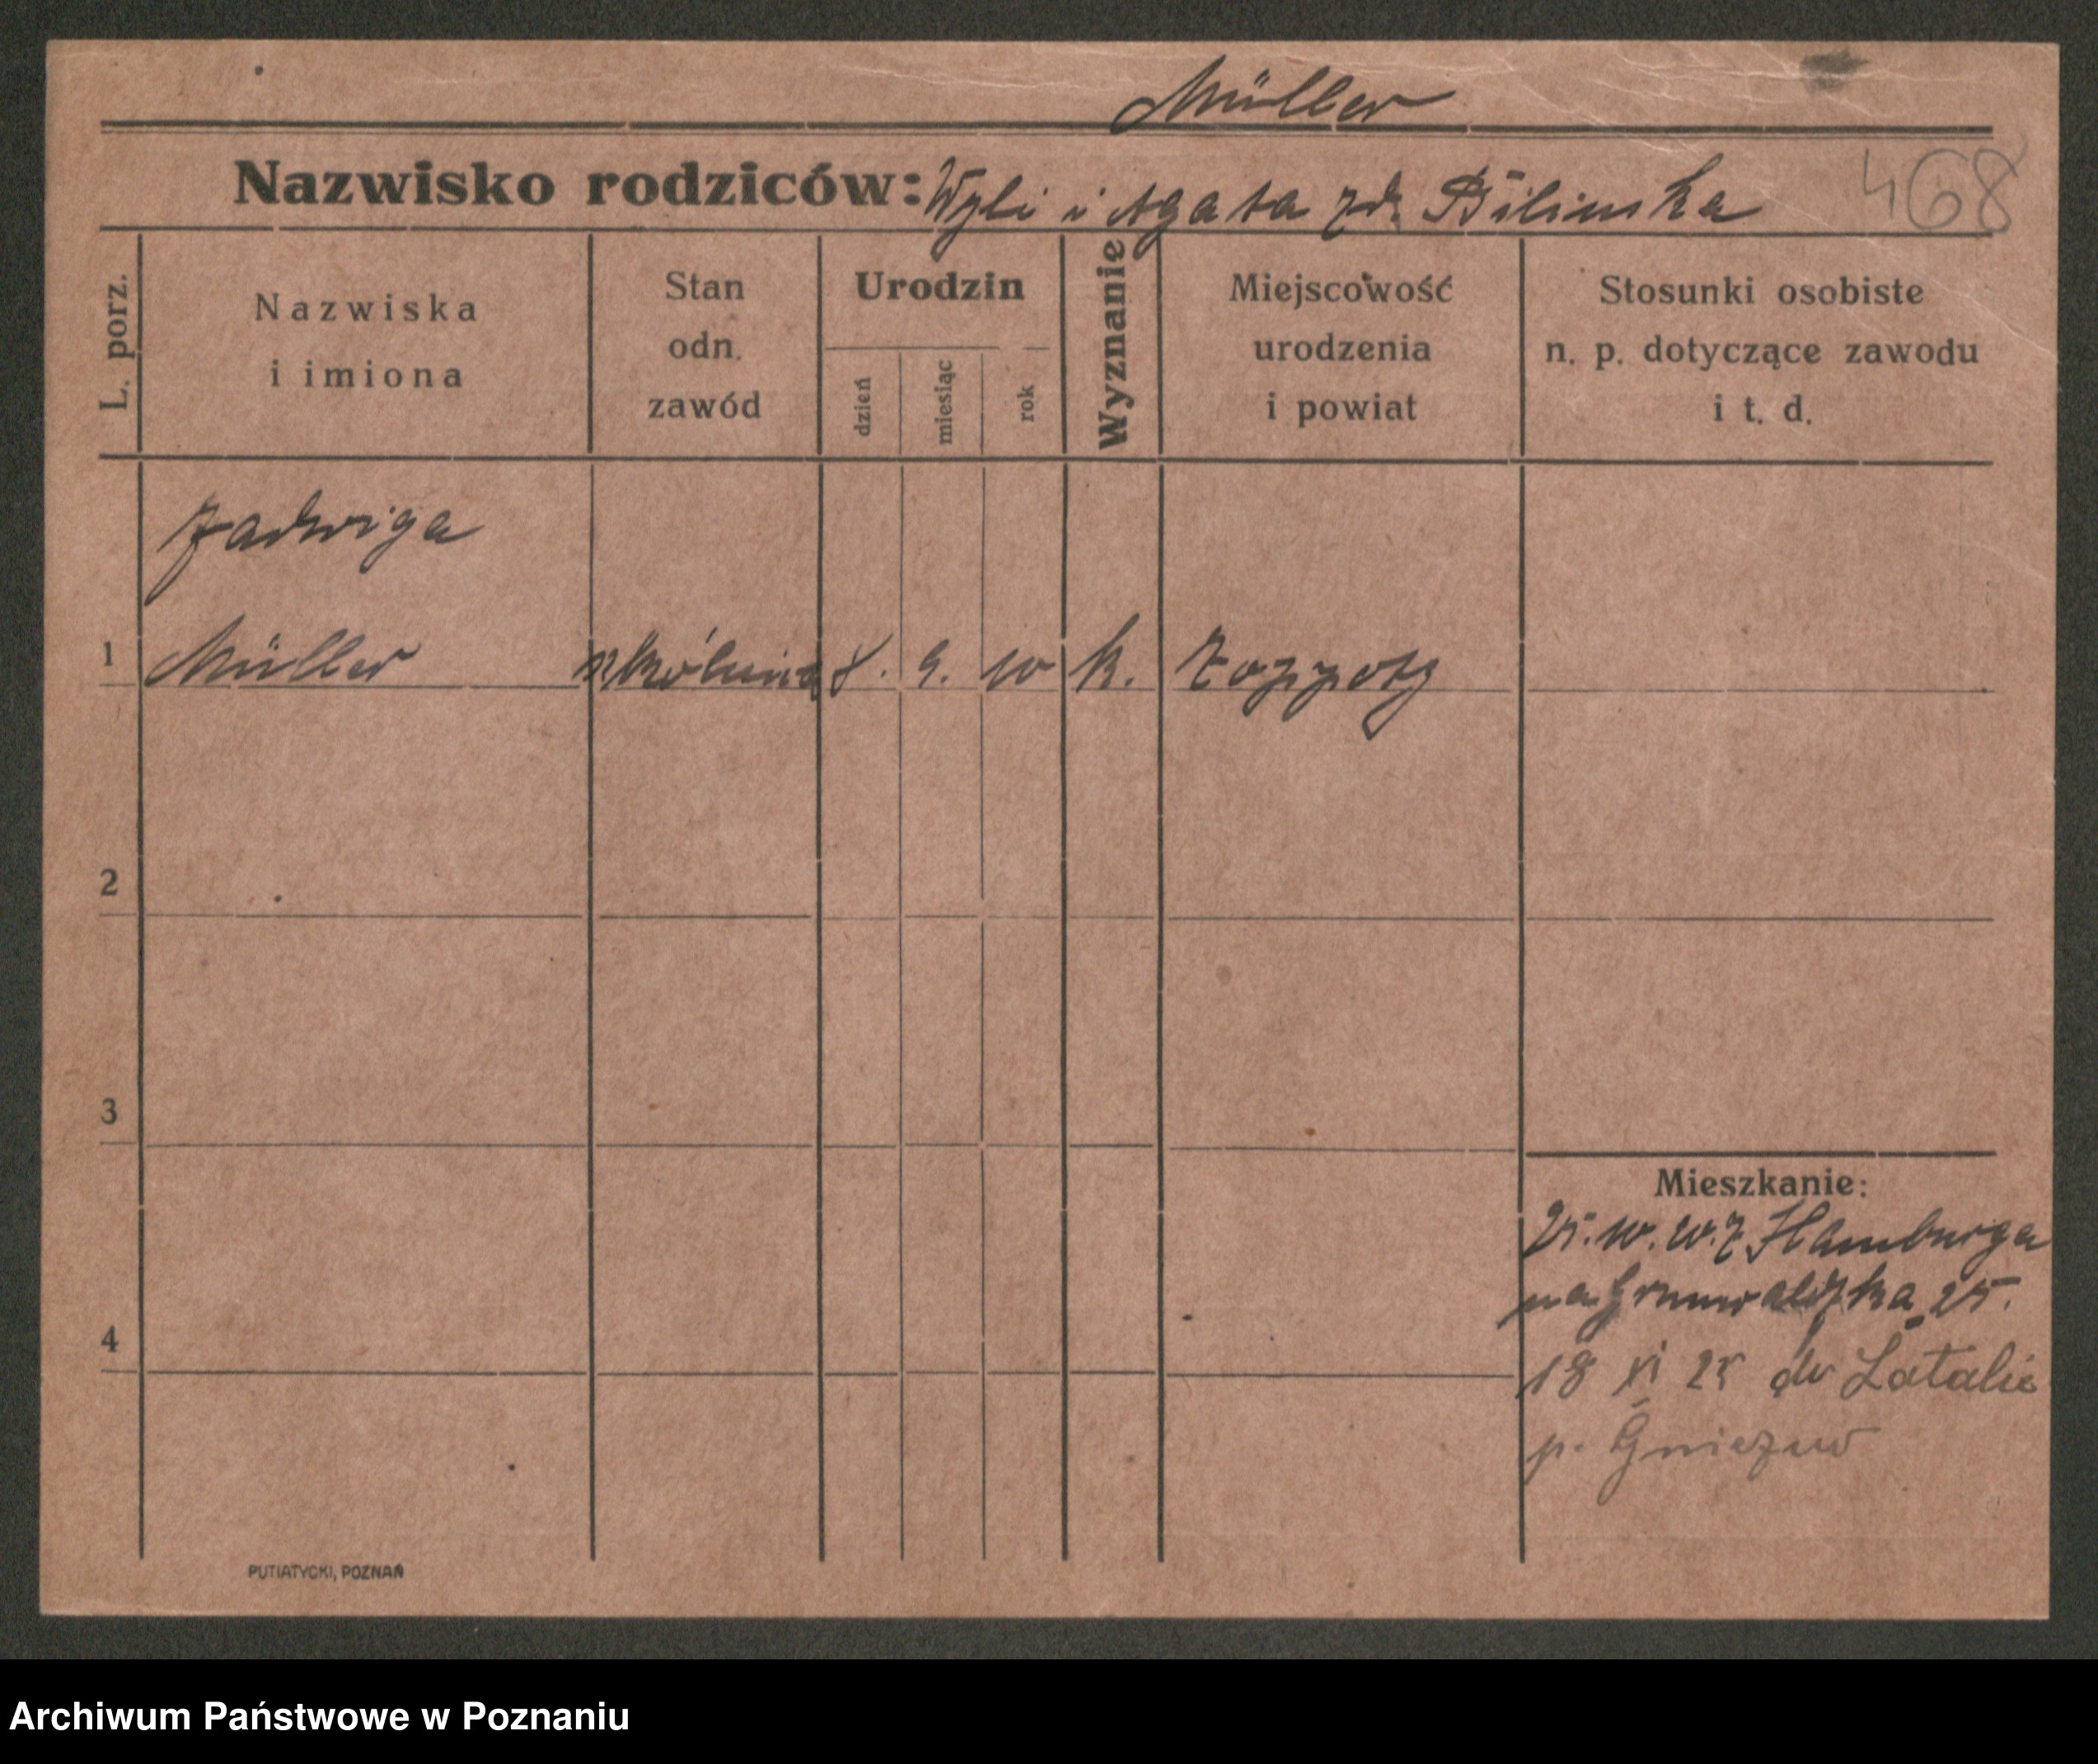 Müller
Nazwisko rodziców: Wyli i Agata zd. Bilinska
468
L. porz.
Nazwiska
i imiona
Stan
odn.
zawód
Urodzin
dzień
miesiąc
rok
Wyznanie
Miejscowość
urodzenia
i powiat
Stosunki osobiste
n. p. dotyczące zawodu
i t. d.
Jadwiga
1 Müller 8. 9. 10 k. Zoppoty
2
3
Mieszkanie:
25. 10. Hamburga
na Grunwaldzka 25.
4
18 XI 25 do Latalic
p. Gniezno
PUTIATYCKI, POZNAŃ
Archiwum Państwowe w Poznaniu